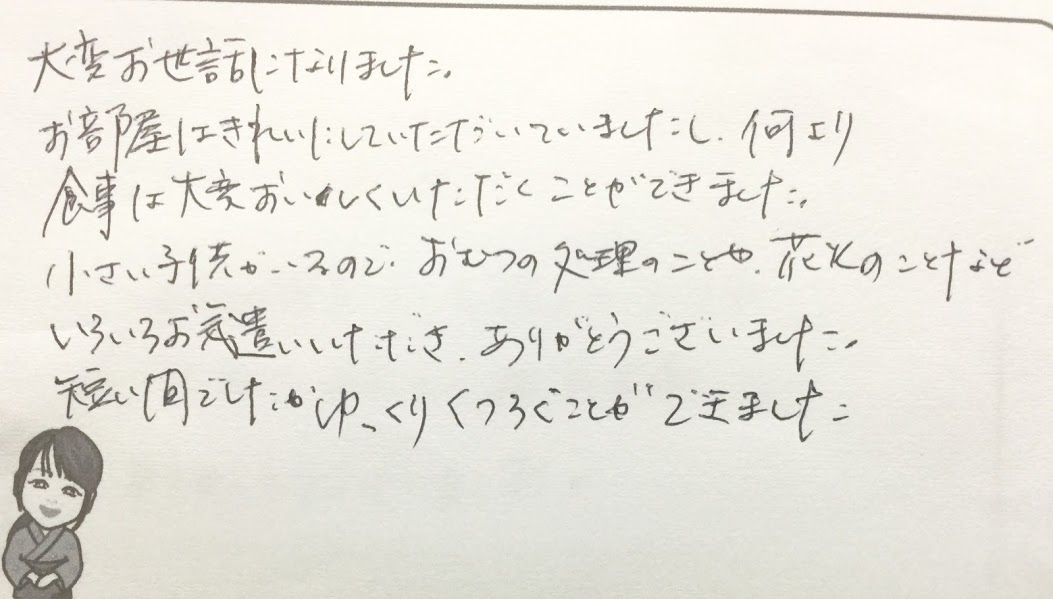 大変お世話になりました。
お部屋はきれいにしていただいていましたし、何より
食事は大変おいしくいただくことができました。
小さい子供がいるので、おむつの処理のことや、花火のことなど
いろいろお気遣いいただき、ありがとうございました。
短い間でしたがゆっくりくつろぐことができました